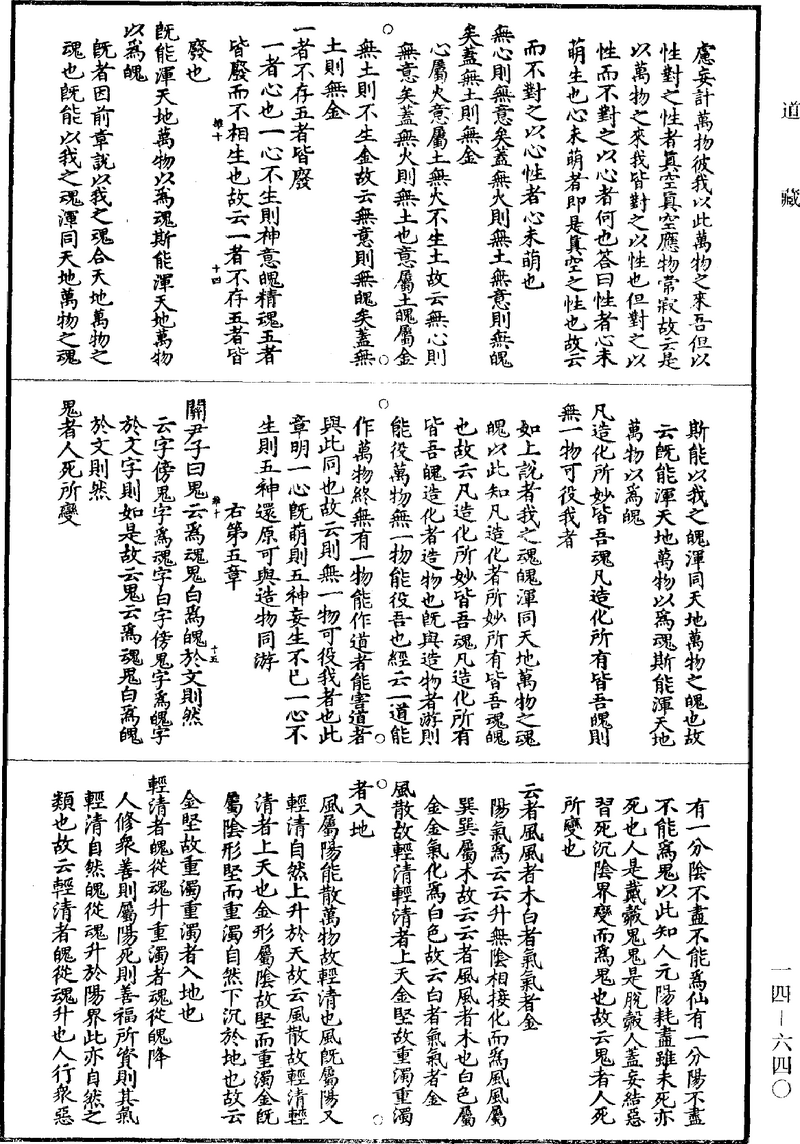 道藏
慮妄計萬物彼我以此萬物之來吾但以
性對之性者真空真空應物常寂故云是
以萬物之來我皆對之以性也但對之以
性而不對之以心者何也答曰性者心未
萌生也心未萌者即是真空之性也故云
而不對之以心性者心未萌也
無心則無意矣蓋無火則無土無意則無魄
矣蓋無土則無金
心屬火意屬土無火不生土故云無心則
無意矣蓋無火則無土也意屬土魄屬金
無土則不生金故云無意則無魄矣蓋無
土則無金
一者不存五者皆廢
一者心也一心不生則神意魄精魂五者
皆廢而不相生也故云一者不存五者皆
雜十 十四
廢也
既能渾天地萬物以爲魂斯能渾天地萬物
以爲魄
既者因前章說以我之魂合天地萬物之
魂也既能以我之魂渾同天地萬物之魂
斯能以我之魄渾同天地萬物之魄也故
云既能渾天地萬物以爲魂斯能渾天地
萬物以爲魄
凡造化所妙皆吾魂凡造化所有皆吾魄則
無一物可役我者
如上說者我之魂魄渾同天地萬物之魂
魄以此知凡造化者所妙所有皆吾魂魄
也故云凡造化所妙皆吾魂凡造化所有
皆吾魄造化者造物也既與造物者游則
能役萬物無一物能役吾也經云一道能
作萬物終無有一物能作道者能害道者
與此同也故云則無一物可役我者也此
章明一心既萌則五神妄生不已一心不
生則五神還原可與造物同游
右第五章
雜十 十五
關尹子曰鬼云爲魂鬼白爲魄於文則然
云字傍鬼字爲魂字白字傍鬼字爲魄字
於文字則如是故云鬼云爲魂鬼白爲魄
於文則然
鬼者人死所變
有一分陰不盡不能爲仙有一分陽不盡
不能爲鬼以此知人元陽耗盡雖未死亦
死也人是戴殼鬼鬼是脫殼人蓋妄結惡
習死沉陰界變而爲鬼也故云鬼者人死
所變也
云者風風者木白者氣氣者金
陽氣爲云云升無陰相接化而爲風風屬
巽巽屬木故云云者風風者木也白色屬
金金氣化爲白色故云白者氣氣者金
風散故輕清輕清者上天金堅故重濁重濁
者入地
風屬陽能散萬物故輕清也風既屬陽又
輕清自然上升於天故云風散故輕清輕
清者上天也金形屬陰故堅而重濁金既
屬陰形堅而重濁自然下沉於地也故云
金堅故重濁重濁者入地也
輕清者魄從魂升重濁者魂從魄降
人修衆善則屬陽死則善福所資則其氣
輕清自然魄從魂升於陽界此亦自然之
類也故云輕清者魄從魂升也人行衆惡
一四－六四〇